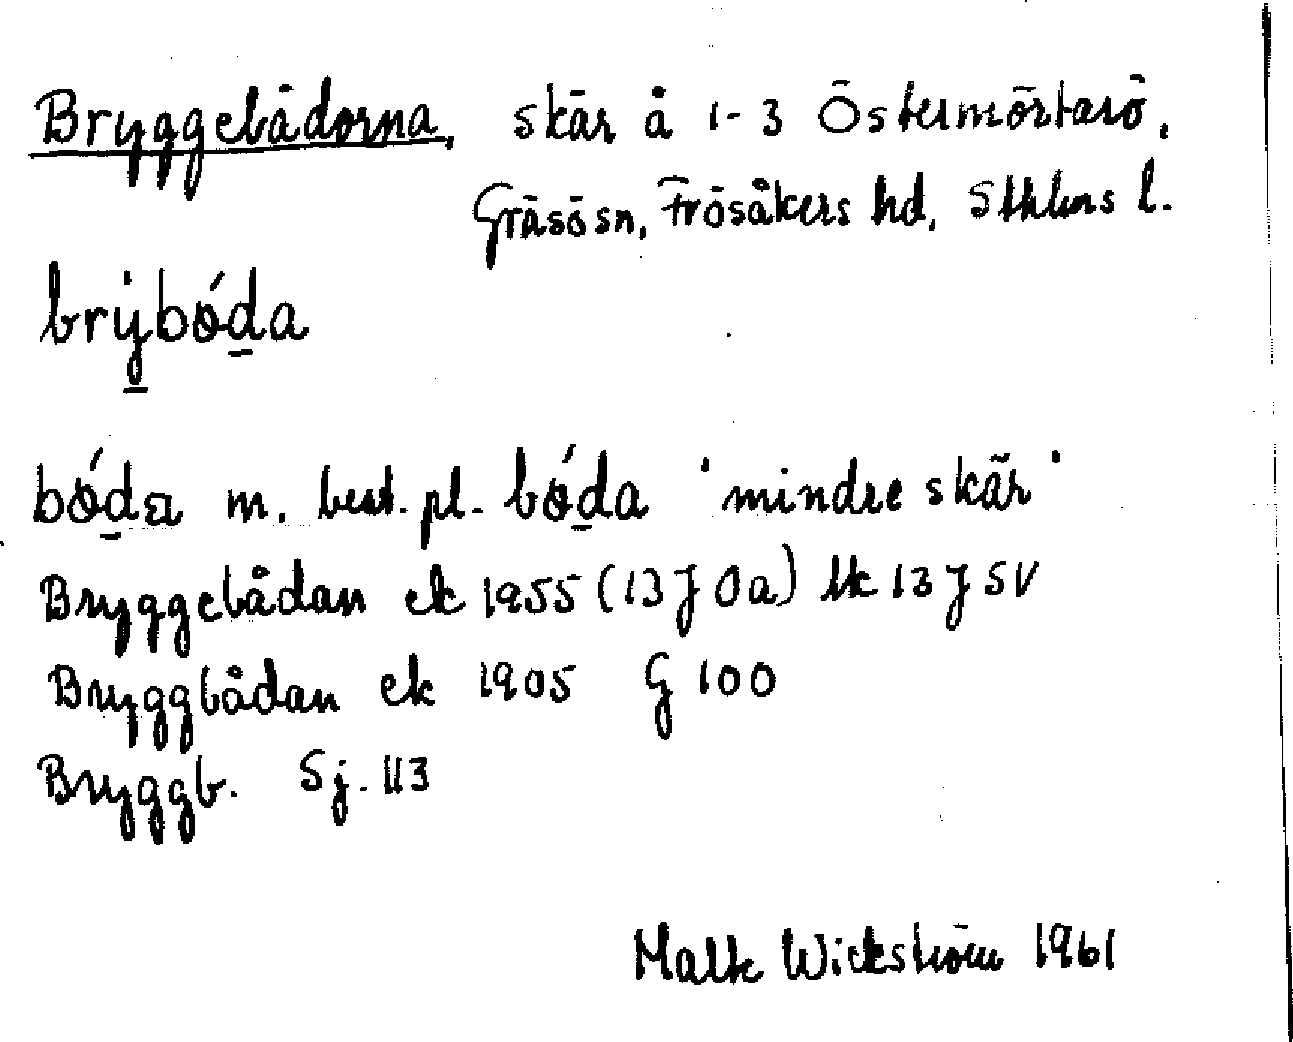 Bryggebådorna, skär å 1-3 Östermörtarö,
Gräsö sn, Frösåkers hd, Sthlms l.
brýbóda
bóda m. best. pl. bóda 'mindre skär'
Bryggebådan ek 1955 (13 J Oa) llk 13 J SV
Bryggbådan ek 1905 G 100
Bryggb. Sj. 113
Malte Wickström 1961